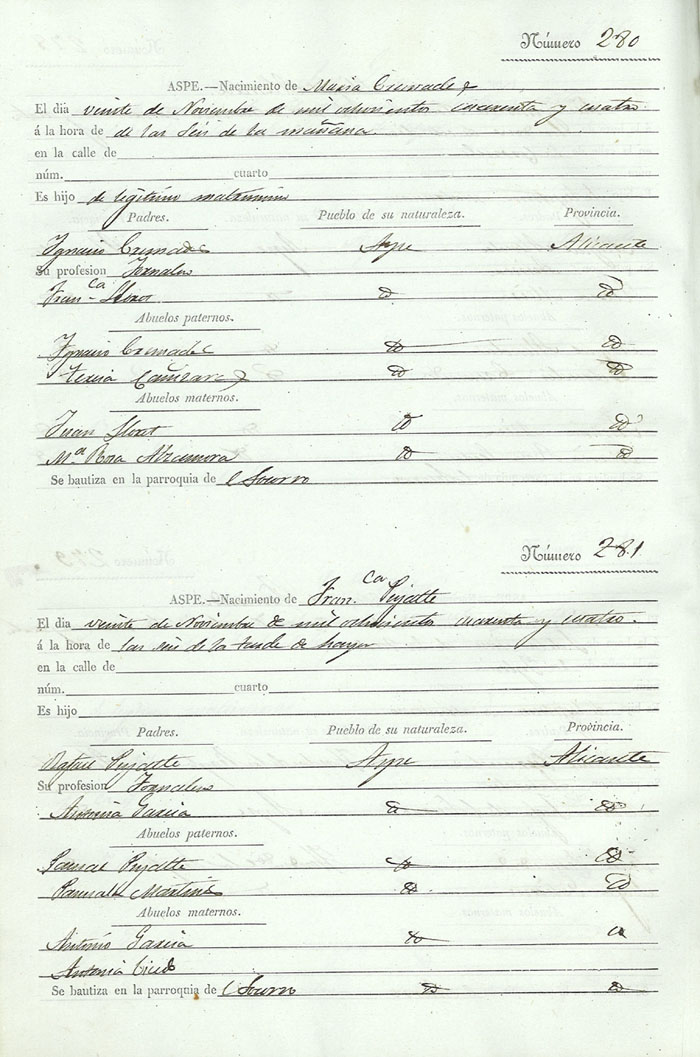 Número 280
ASPE.—Nacimiento de Maria Cremades
El dia veinte de Noviembre de mil ochocientos cuarenta y cuatro
á la hora de de las seis de la mañana
en la calle de
núm. cuarto
Es hijo de legitimo matrimonio
Padres. Pueblo de su naturaleza. Provincia.
Ygnacio Cremades Aspe Alicante
Su profesion Jornalero
Fran.ca Lloret
Abuelos paternos.
Ygnacio Cremades
Teresa Cañizares
Abuelos maternos.
Juan Lloret
Mª Rosa Alzamora
Se bautiza en la parroquia de el Socorro
Número 281
ASPE.—Nacimiento de Fran.ca Pujalte
El dia veinte de Noviembre de mil ochocientos cuarenta y cuatro.
á la hora de las seis de la tarde de
en la calle de
núm. cuarto
Es hijo
Padres. Pueblo de su naturaleza. Provincia.
Rafael Pujalte Aspe Alicante
Su profesion Jornalero
Antonia Garcia
Abuelos paternos.
Pujalte
Martinez
Abuelos maternos.
Antonio Garcia
Antonia
Se bautiza en la parroquia de el Socorro